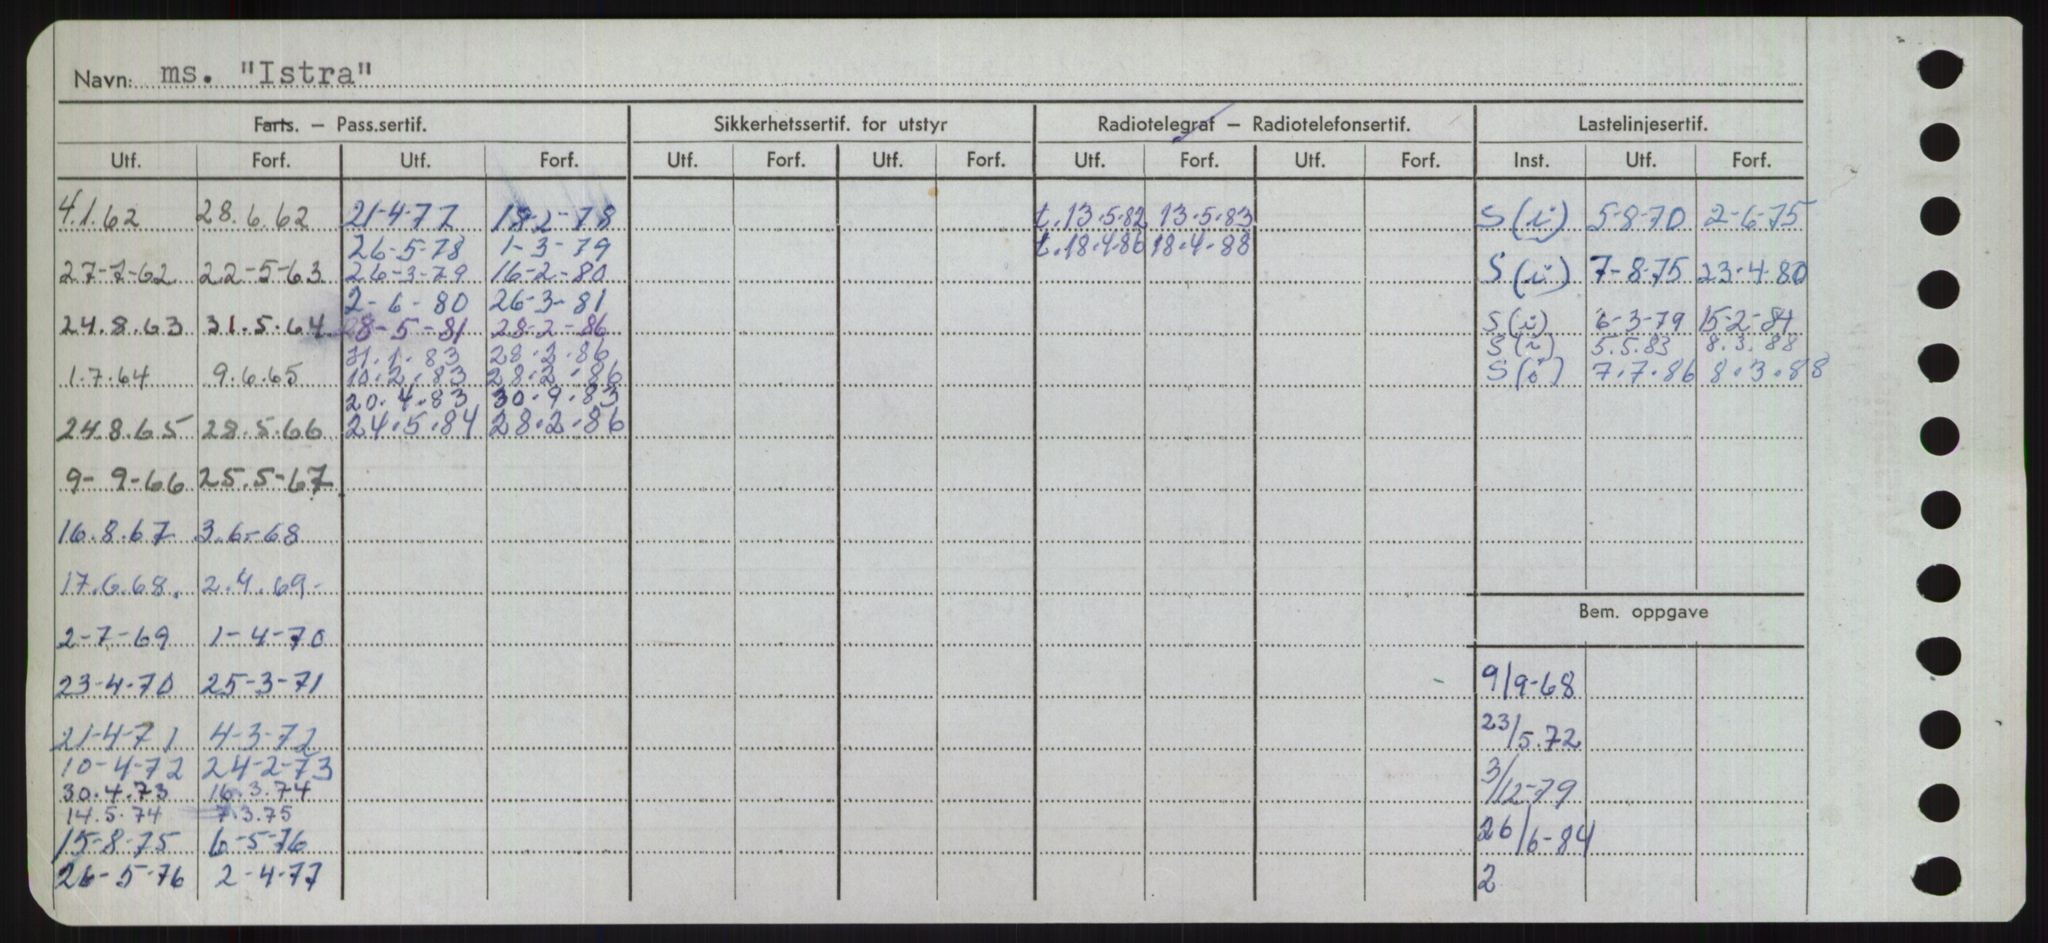 Navn: ms. "Istra"
Farts. – Pass.sertif. Sikkerhetssertif. for utstyr Radiotelegraf – Radiotelefonsertif. Lastelinjesertif.
Utf. Forf. Utf. Forf. Utf. Forf. Utf. Forf. Utf. Forf. Utf. Forf. Inst. Utf. Forf.
4.1.62 28.6.62 21-4-77 18-2-78 t.13.5.82 13.5.83 S(i) 5-8-70 2-6-75
26-5-78 1-3-79 t.18.4.86 18.4.88
27-7-62 22-5-63 26-3-79 16-2-80 S(i) 7-8-75 23-4-80
2-6-80 26-3-81
24.8.63 31.5.64 28-5-81 28-2-86 S(i) 6-3-79 15-2-84
31.1.83 28.2.86 S(i) 5.5.83 8.3.88
1.7.64 9.6.65 10.2.83 28.2.86 S(i) 7.7.86 8.3.88
20.4.83 30.9.83
24.8.65 28.5.66 24.5.84 28.2.86
9-9-66 25.5-67
16.8.67 3.6-68
17.6.68. 2.4.69-
2-7-69 1-4-70
Bem. oppgave
23-4-70 25-3-71 9/9-68
21-4-71 4-3-72 23/5.72
10-4-72 24-2-73
30.4.73 16.3.74 3/12-79
14.5.74 7.3.75
15-8-75 6-5-76 26/6-84
26-5-76 2-4-77 2